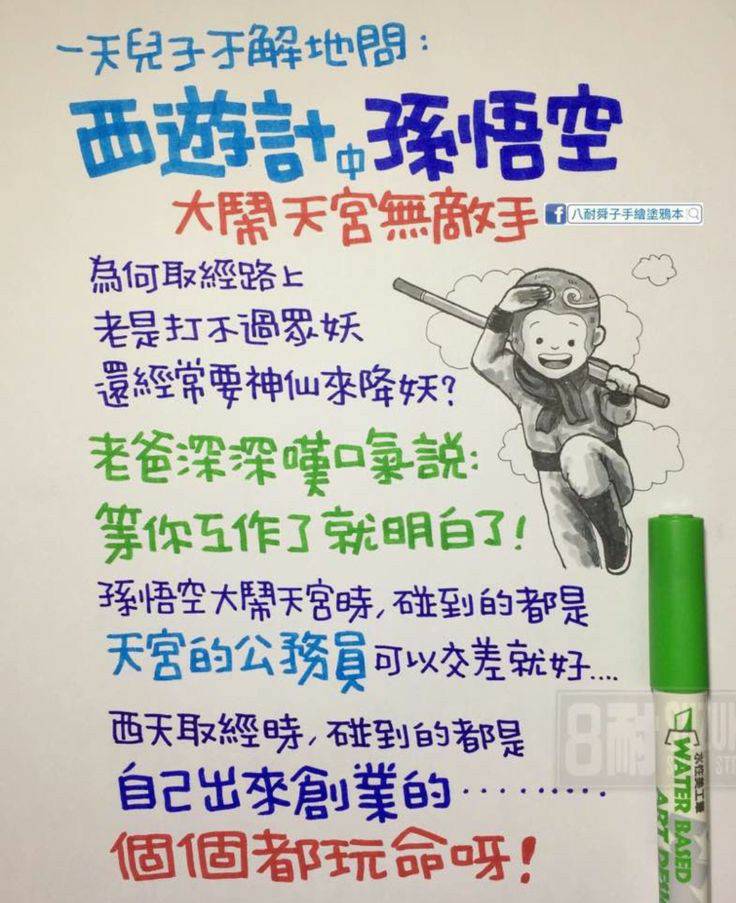 一天兒子不解地問：
西遊計中孫悟空
大鬧天宮無敵手
八耐舜子手繪塗鴉本
為何取經路上
老是打不過眾妖
還經常要神仙來降妖?
老爸深深嘆口氣說：
等你工作了就明白了!
孫悟空大鬧天宮時,碰到的都是
天宮的公務員可以交差就好....
西天取經時,碰到的都是
自己出來創業的.........
個個都玩命呀!
8耐
WATER BASED